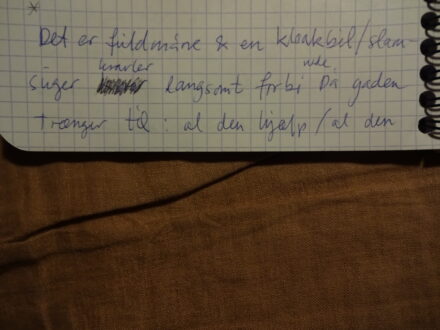 *
Det er fuldmåne & en kloakbil/slam-
kravler ude
suger langsomt forbi På gaden
trænger til : al den hjælp/al den